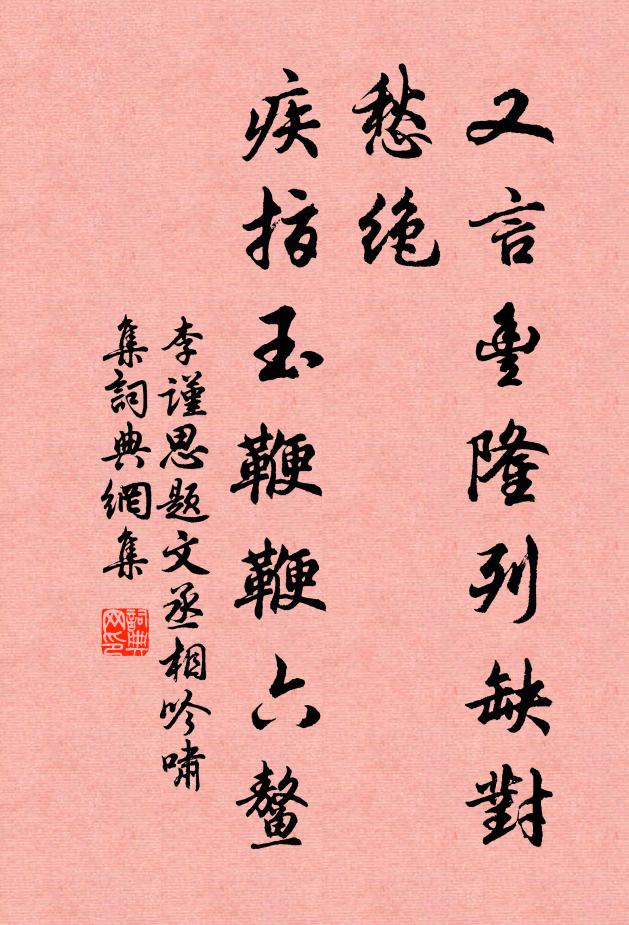 又言豊隆列缺對
愁絶
疾指玉鞭鞭六鼇
李謹思题文丞相吟嘯
集詞典網集
詞典
网印